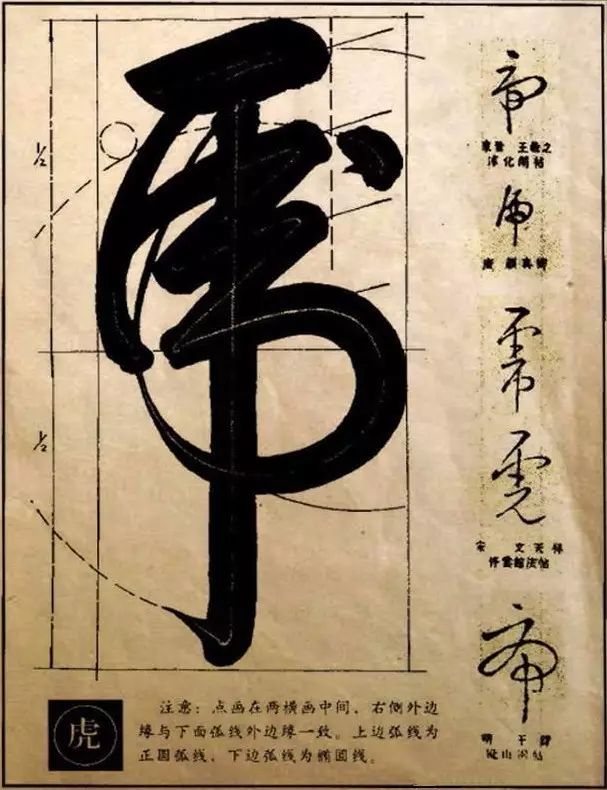 虎
½
½
東晉 王羲之
淳化閣帖
唐 顏真卿
宋 文天祥
停雲館法帖
明 王鐸
虎
注意：点画在两横画中间，右侧外边
缘与下面弧线外边缘一致。上边弧线为
正圆弧线，下边弧线为椭圆线。